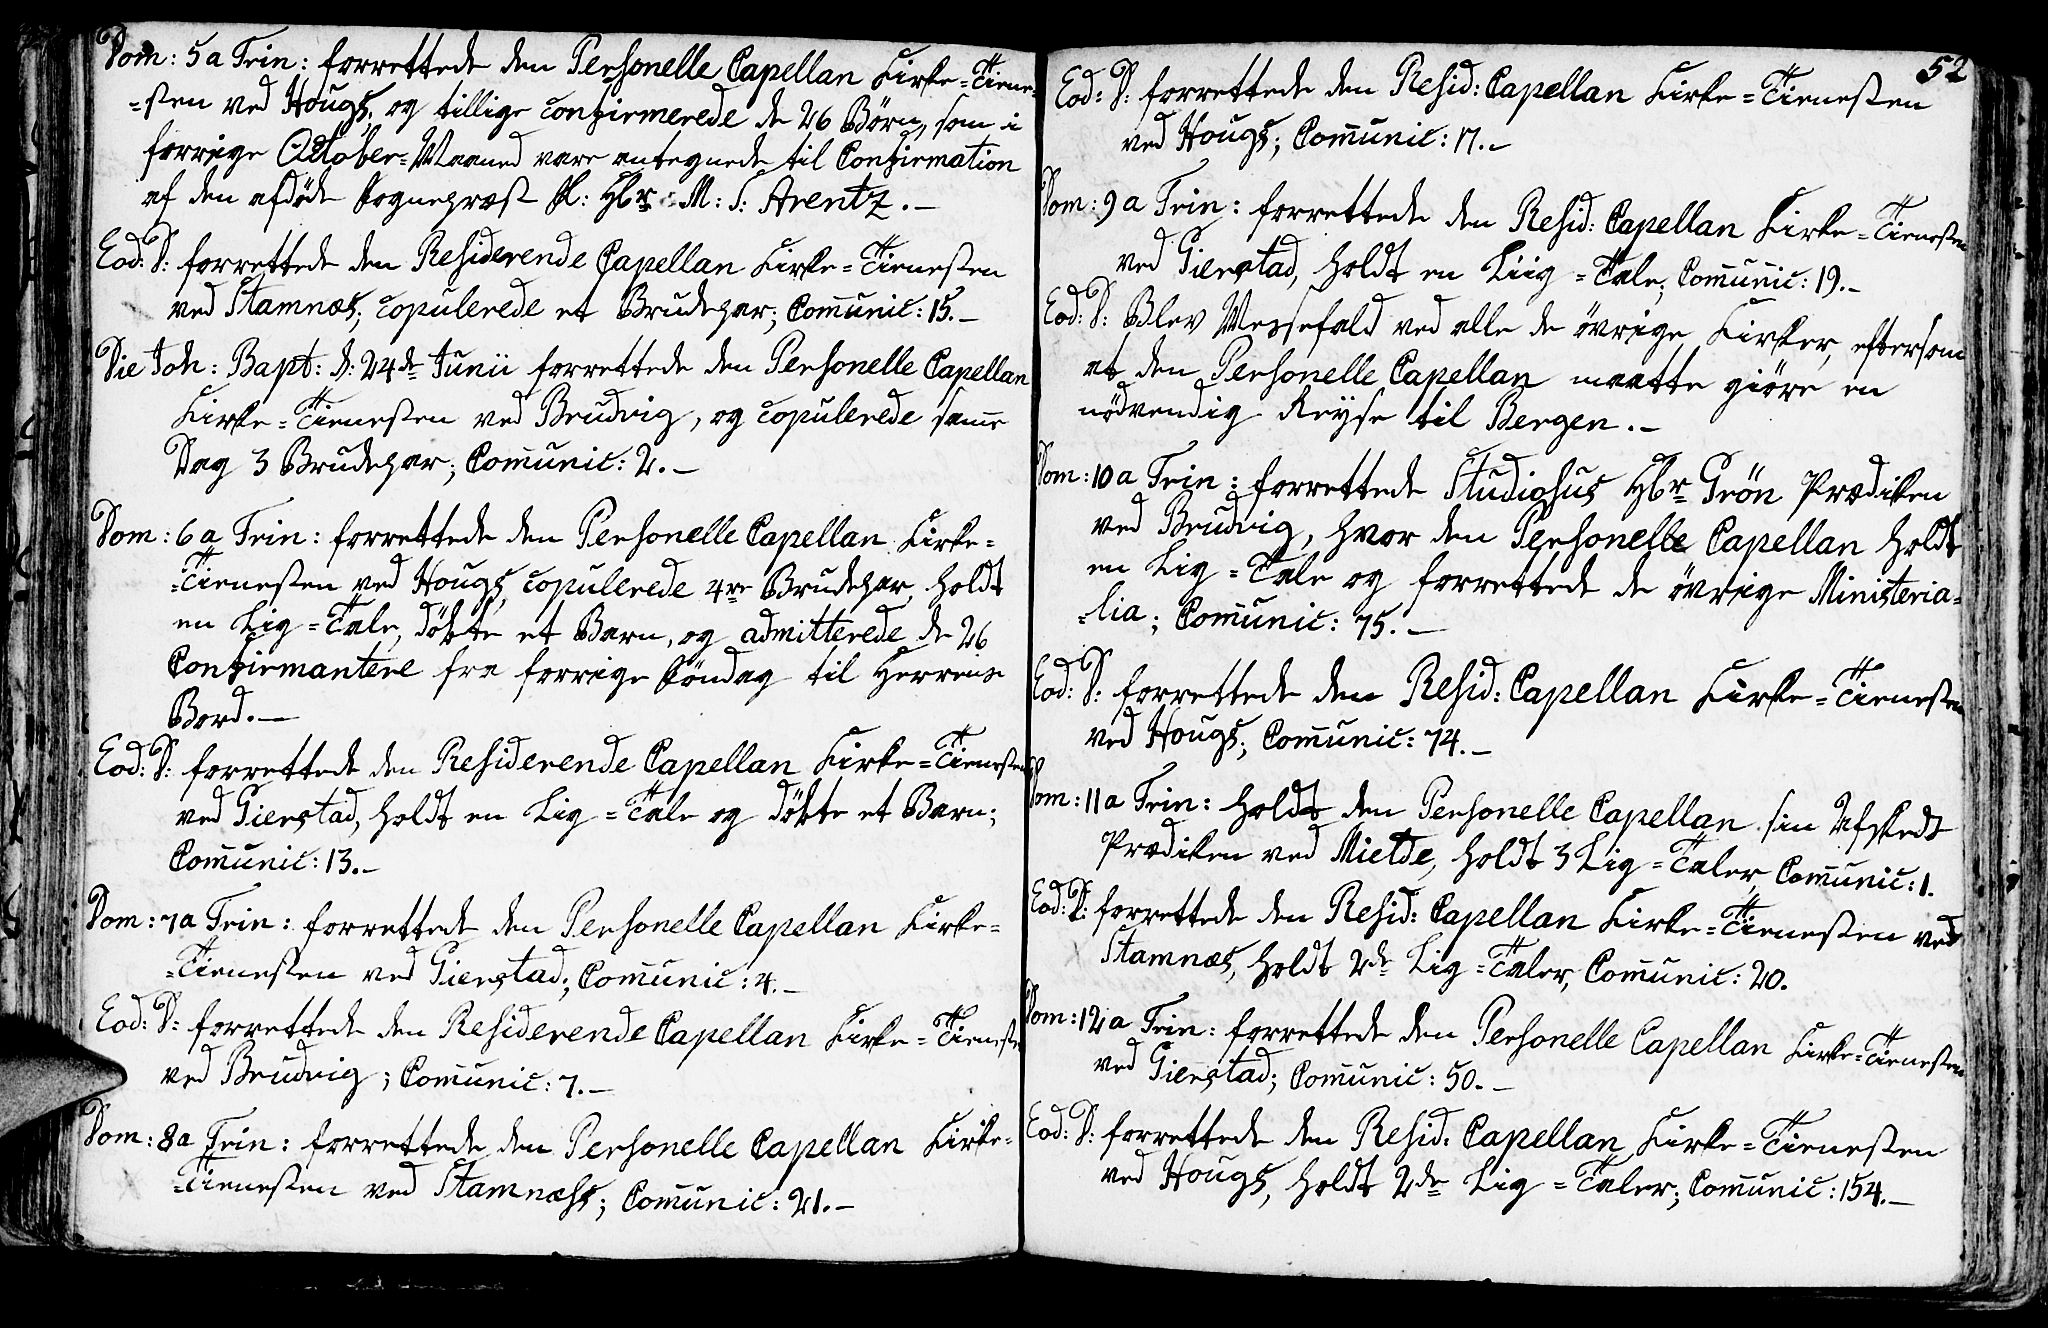 Dom: 5a Trin: forrettede den Personelle Capellan Kirke=Tiene-
=sten ved Hougs, og tillige confirmerede de 26 Børn, som i
forrige October=Maaned vare antegnede til Confirmation
af den afdöde Sognepræst Sl: Hbr: M: S: Arentz.-
Eod: D: forrettede den Residerende Capellan Kirke=Tienesten
ved Stamnæs; copulerede et Brudepar; Comunic: 15.-
Die Joh: Bapt: d: 24de Junii forrettede den Personelle Capellan
Kirke=Tienesten ved Brudvig, og copulerede samme
Dag 3 Brudepar; Comunic: 2.-
Dom: 6a Trin: forrettede den Personelle Capellan Kirke=
=Tienesten ved Hougs, copulerede 4re Brudepar, holdt
en Lig=Tale, döbte et Barn, og admitterede de 26
Confirmantere fra forrige Söndag til Herrens
Bord.-
Eod: D: forrettede den Residerende Capellan Kirke=Tienesten
ved Gierstad, holdt en Lig=Tale og döbte et Barn;
Comunic: 13.-
Dom: 7a Trin: forrettede den Personelle Capellan Kirke=
=Tienesten ved Gierstad; Comunic: 4.-
Eod: D: forrettede den Residerende Capellan Kirke=Tieneste
ved Brudvig; Comunic: 7.-
Dom: 8a Trin: forrettede den Personelle Capellan Kirke=
=Tienesten ved Stamnæss; Comunic: 21.-
52
Eod: D: forrettede den Resid: Capellan Kirke=Tienesten
ved Hougs; Comunic: 17.-
Dom: 9a Trin: forrettede den Resid: Capellan Kirke=Tienesten
ved Gierstad, holdt en Liig=Tale; Comunic: 19.-
Eod: D: Blev Messefald ved alle de övrige Kirker, eftersom
at den Personelle Capellan maatte giöre en
nödvendig Reyse til Bergen.-
Dom: 10a Trin: forrettede Studiosus Hbr Grön Prædiken
ved Brudvig, hvor den Personelle Capellan holdt
en Lig=Tale og forrettede de övrige Ministeria=
=lia; Comunic: 75.-
Eod: D: forrettede den Resid: Capellan Kirke=Tienesten
ved Hougs; Comunic: 74.-
Dom: 11a Trin: holdt den Personelle Capellan sin Afskeds
Prædiken ved Mielde, holdt 3 Lig=Taler, Comunic: 1.
Eod: D: forrettede den Resid: Capellan Kirke=Tienesten ved
Stamnæs, holdt 2de Lig=Taler, Comunic: 20.
Dom: 12a Trin: forrettede den Personelle Capellan Kirke=Tienesten
ved Gierstad; Comunic: 50.-
Eod: D: forrettede den Resid: Capellan Kirke=Tienesten
ved Hougs, holdt 2de Lig=Taler; Comunic: 154.-